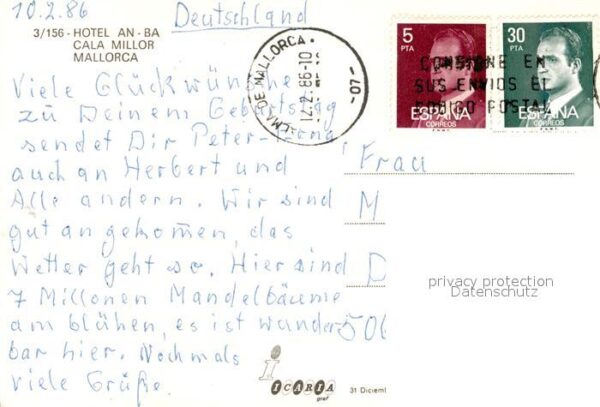 10.2.86 Deutschland
3/156 - HOTEL AN - BA
CALA MILLOR
MALLORCA
Viele Glückwünsche
zu Deinem Geburtstag
sendet Dir Peter
auch an Herbert und
Alle andern. Wir sind
gut angekommen, das
Wetter geht so. Hier sind
7 Millonen Mandelbäume
am blühen, es ist wunder
bar hier. Nochmals
viele Grüße.
MA DE MALLORCA
-10 98.2.
-07-
5
PTA
30
PTA
CONSIGNE EN
SUS ENVIOS EL
CODIGO POSTAL
ESPAÑA
CORREOS
ESPAÑA
CORREOS
Frau
M
D
506
privacy protection
Datenschutz
i
ICARIA
31 Diciem